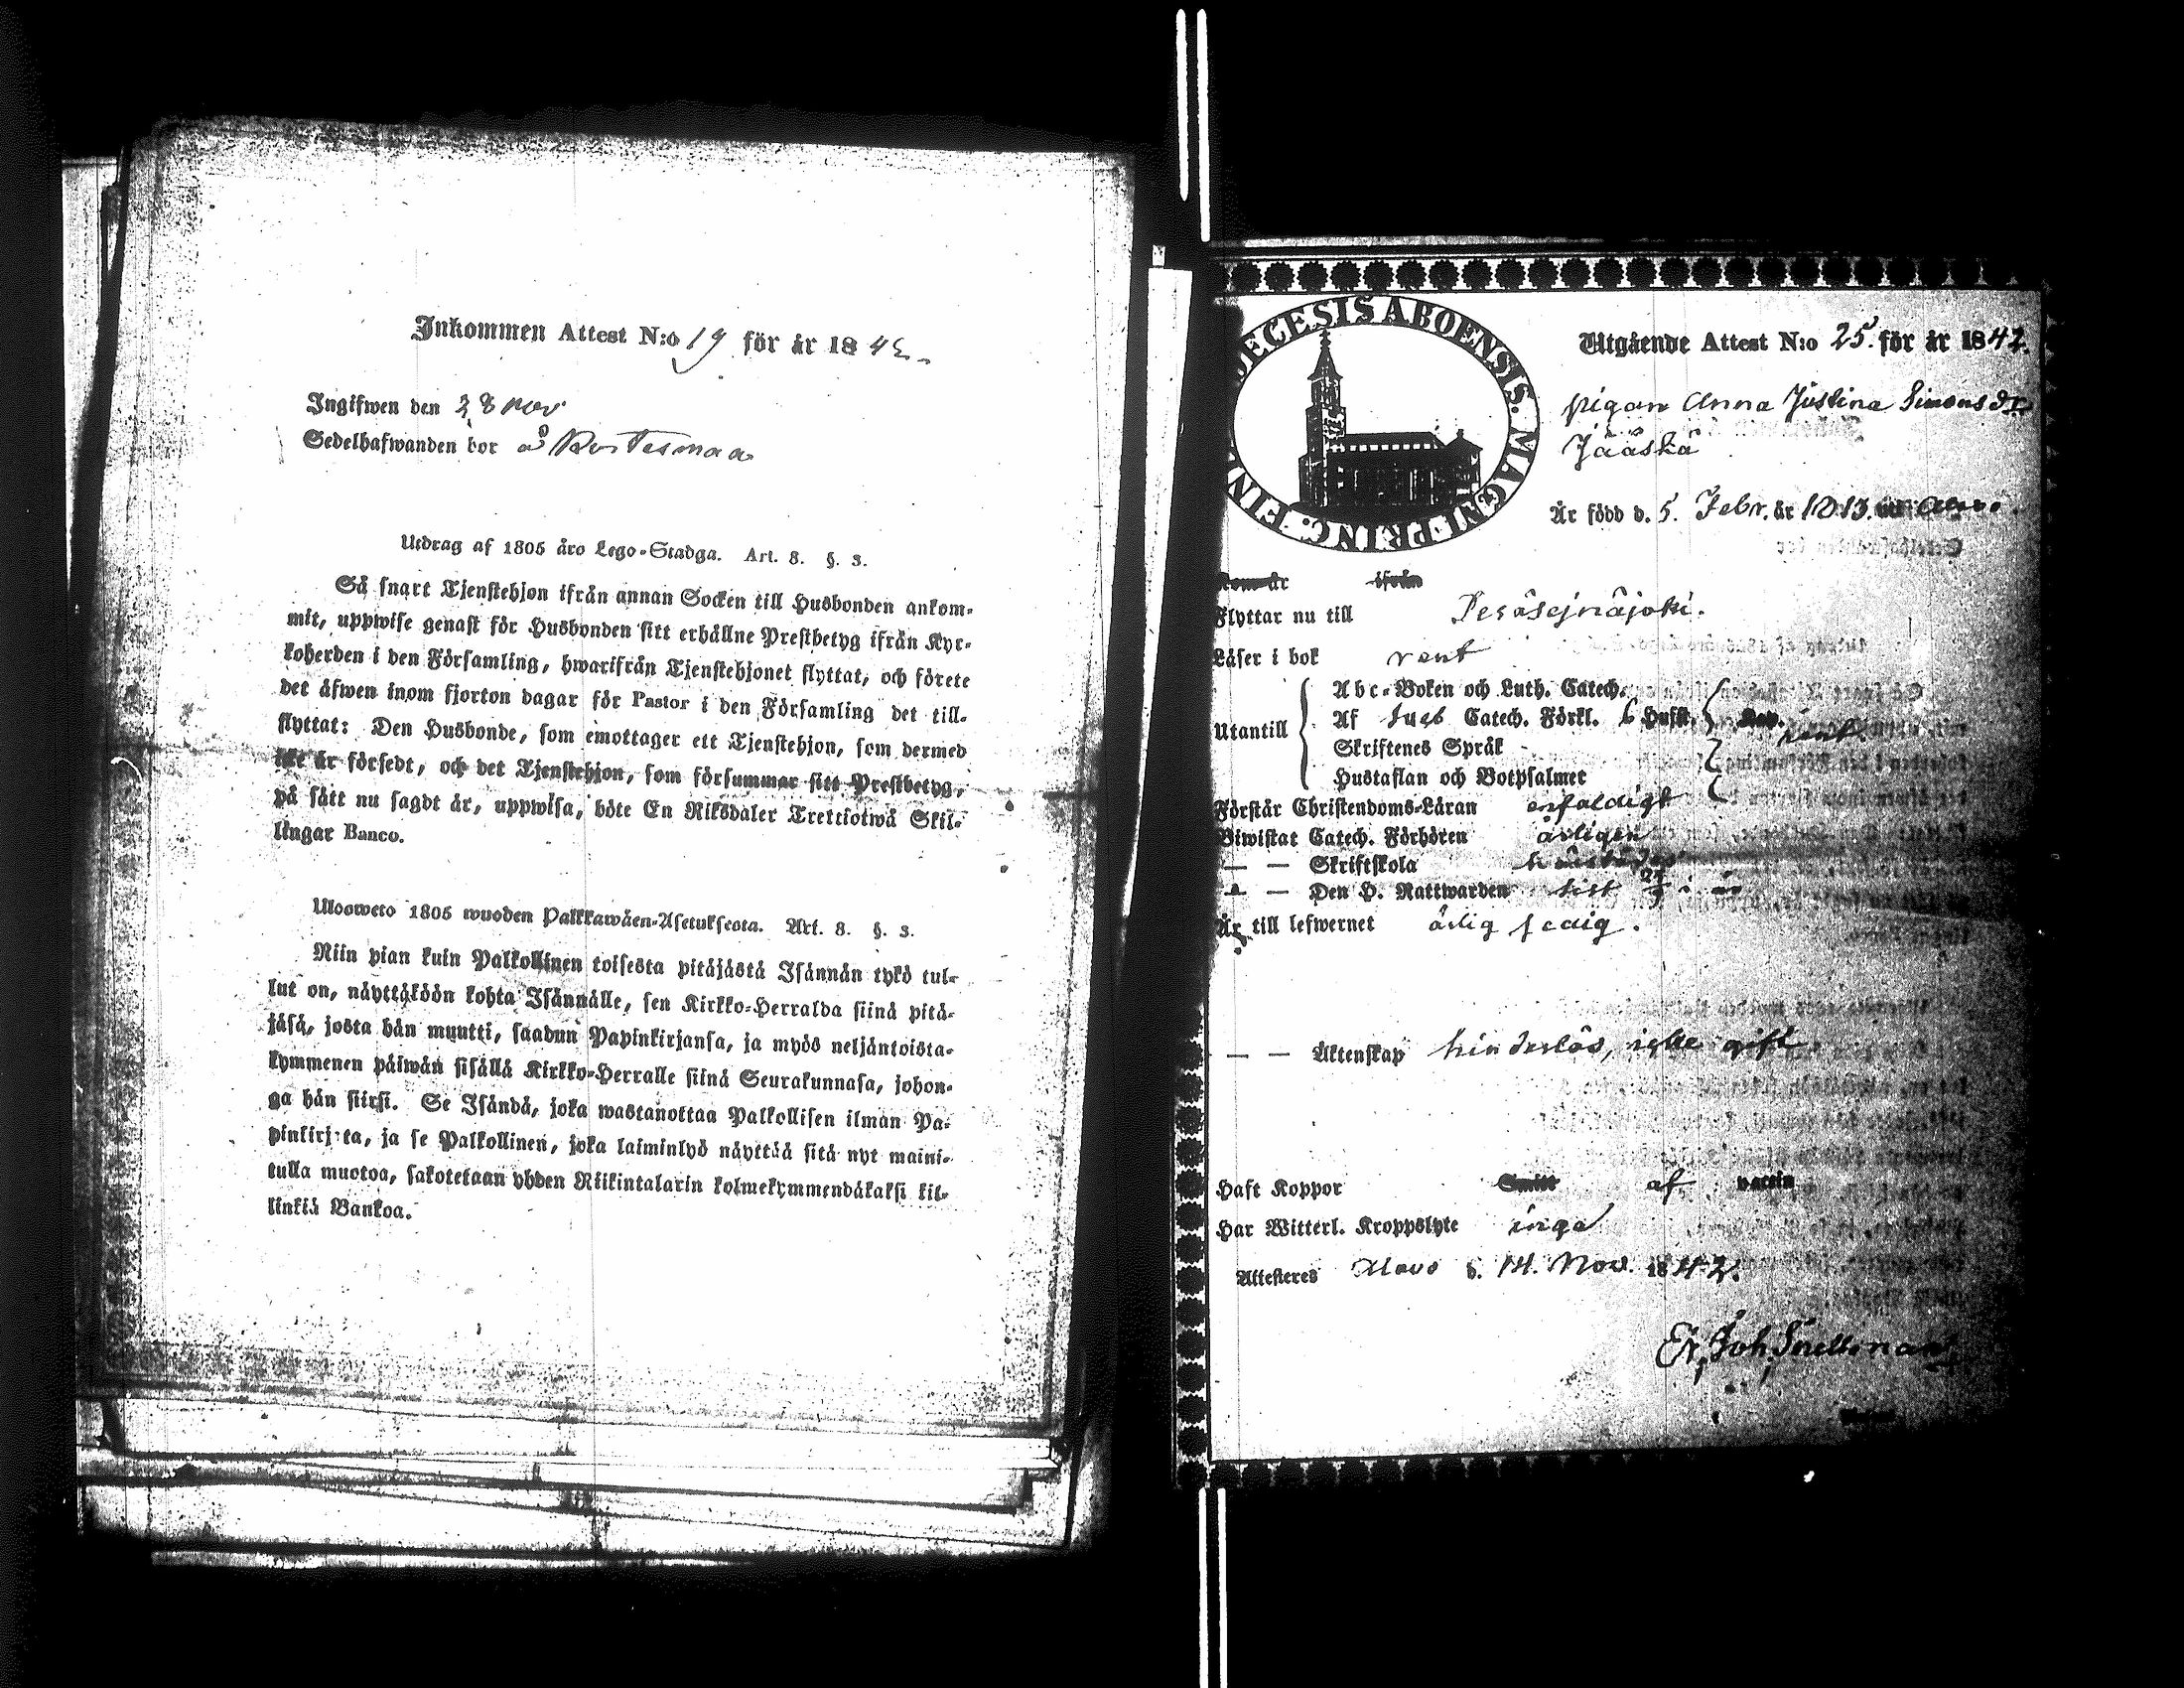 Inkommen Attest N:o 19 för år 1842.
Ingifwen den 28 nov
Sedelhafwanden bor å Kortesmaa
Utdrag af 1805 åro Lego-Stadga. Art. 8. §. 3.
Så snart Tjenstehjon ifrån annan Socken till Husbonden ankom-
mit, uppwise genast för Husbonden sitt erhållne Prestbetyg ifrån Kyr-
koherden i den Församling, hwarifrån Tjenstehjonet flyttat, och förete
det äfwen inom fjorton dagar för Pastor i den Församling det till-
flyttat: Den Husbonde, som emottager ett Tjenstehjon, som dermed
icke är försedt, och det Tjenstehjon, som försummar sitt Prestbetyg,
på sätt nu sagdt är, uppwisa, böte En Riksdaler Trettiotwå Skil-
lingar Banco.
Ulosweto 1805 wuoden Palkkawäen-Asetuksesta. Art. 8. §. 3.
Niin pian kuin Palkollinen toisesta pitäjästä Isännän tykö tul-
lut on, näyttäköön kohta Isännälle, sen Kirkko-Herralda siinä pitä-
jäsä, josta hän muutti, saadun Papinkirjansa, ja myös neljäntoista-
kymmenen päiwän sisällä Kirkko-Herralle siinä Seurakunnasa, johon-
ga hän siirsi. Se Isändä, joka wastanottaa Palkollisen ilman Pa-
pinkirjata, ja se Palkollinen, joka laiminlyö näyttää sitä nyt maini-
tulla muotoa, sakotetaan yhden Riikintalarin kolmekymmendäkaksi kil-
linkiä Bankoa.
DIOECESIS ABOENSIS. MAGNI PRINC. FINL.
Utgående Attest N:o 25. för år 1842.
pigan Anna Justina Simonsdr
Jääskä
Är född d. 5. Febr. år 1813. uti Alavo.
Kom år ifrån
Flyttar nu till Peräsejnäjoki.
Läser i bok rent
Utantill
Abc-Boken och Luth. Catech.
Af Sueb Catech. Förkl. 6 Hufst. Kap. rent.
Skriftenes Språk
Hustaflan och Botpsalmer
Förstår Christendoms-Läran enfaldigt
Biwistat Catech. Förhören årligen
— — Skriftskola
— — Den H. Nattwarden sist i år
Är till lefwernet ärlig sedig.
— — Äktenskap hinderlös, icke gift
Haft Koppor Smitt af vaccin
Har Witterl. Kroppslyte inga
Attesteres Alavo d. 14. Nov. 1842.
Er. Joh. Snellman